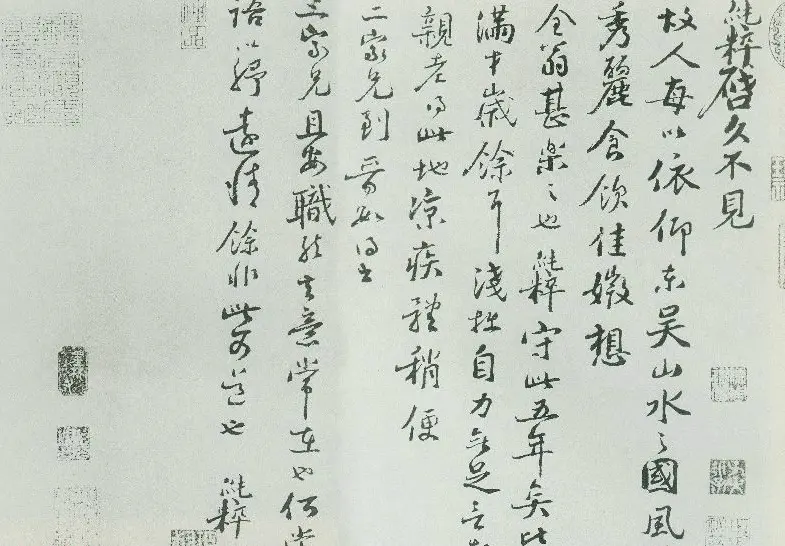 純粹啓久不見
故人每以依仰東吴山水之國風
秀麗食飲佳嫩想
仝翁甚樂之也純粹守此五年矣比
滿才歲餘耳淺拙自力無足言
親老得此地凉疾體稍便
二家兄到晉
三家兄且安職意常在也何當
語以紓遠情餘非此可道也純粹